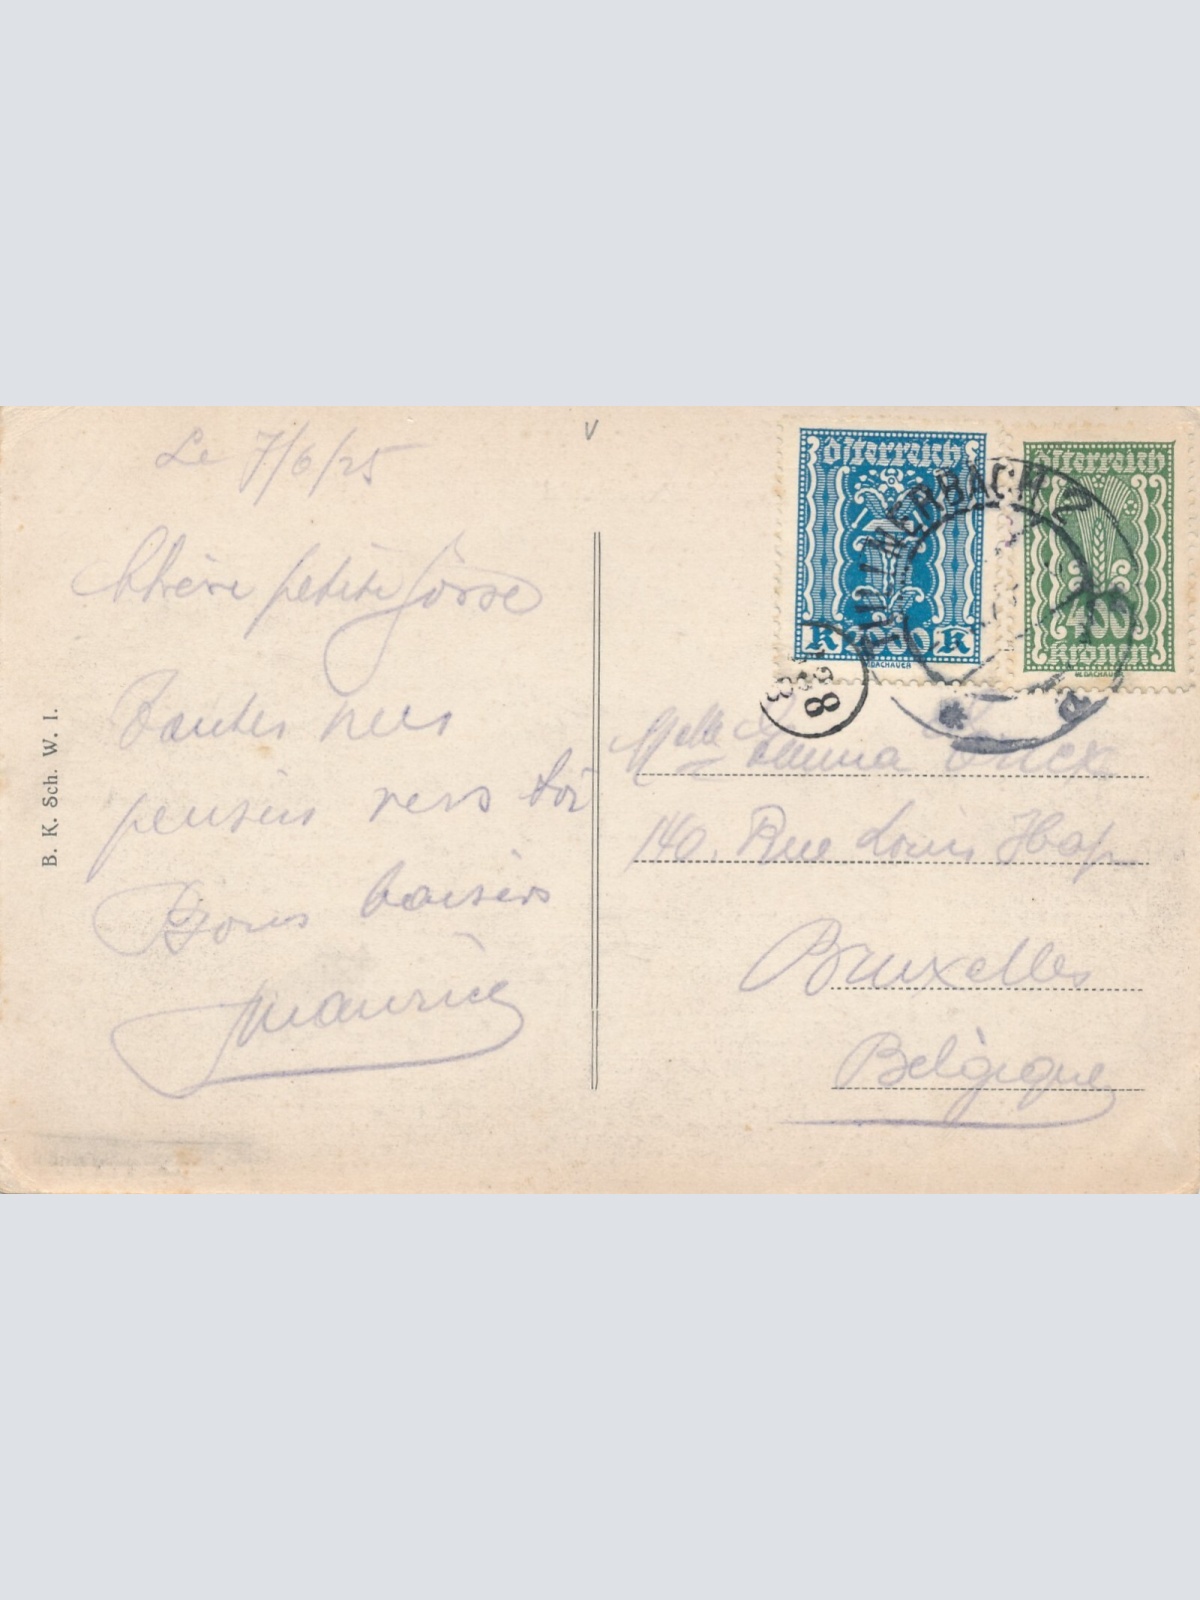 Le 7/6/25
Chère petite Gosse
Toutes mes
pensées vers toi
Bons baisers
Maurice
B. K. Sch. W. I.
Österreich
K 2000 K
W.DACHAUER
Österreich
400
Kronen
W.DACHAUER
TULLNERBACH 2
8
Melle Emma
140. Rue Louis Hap
Bruxelles
Belgique